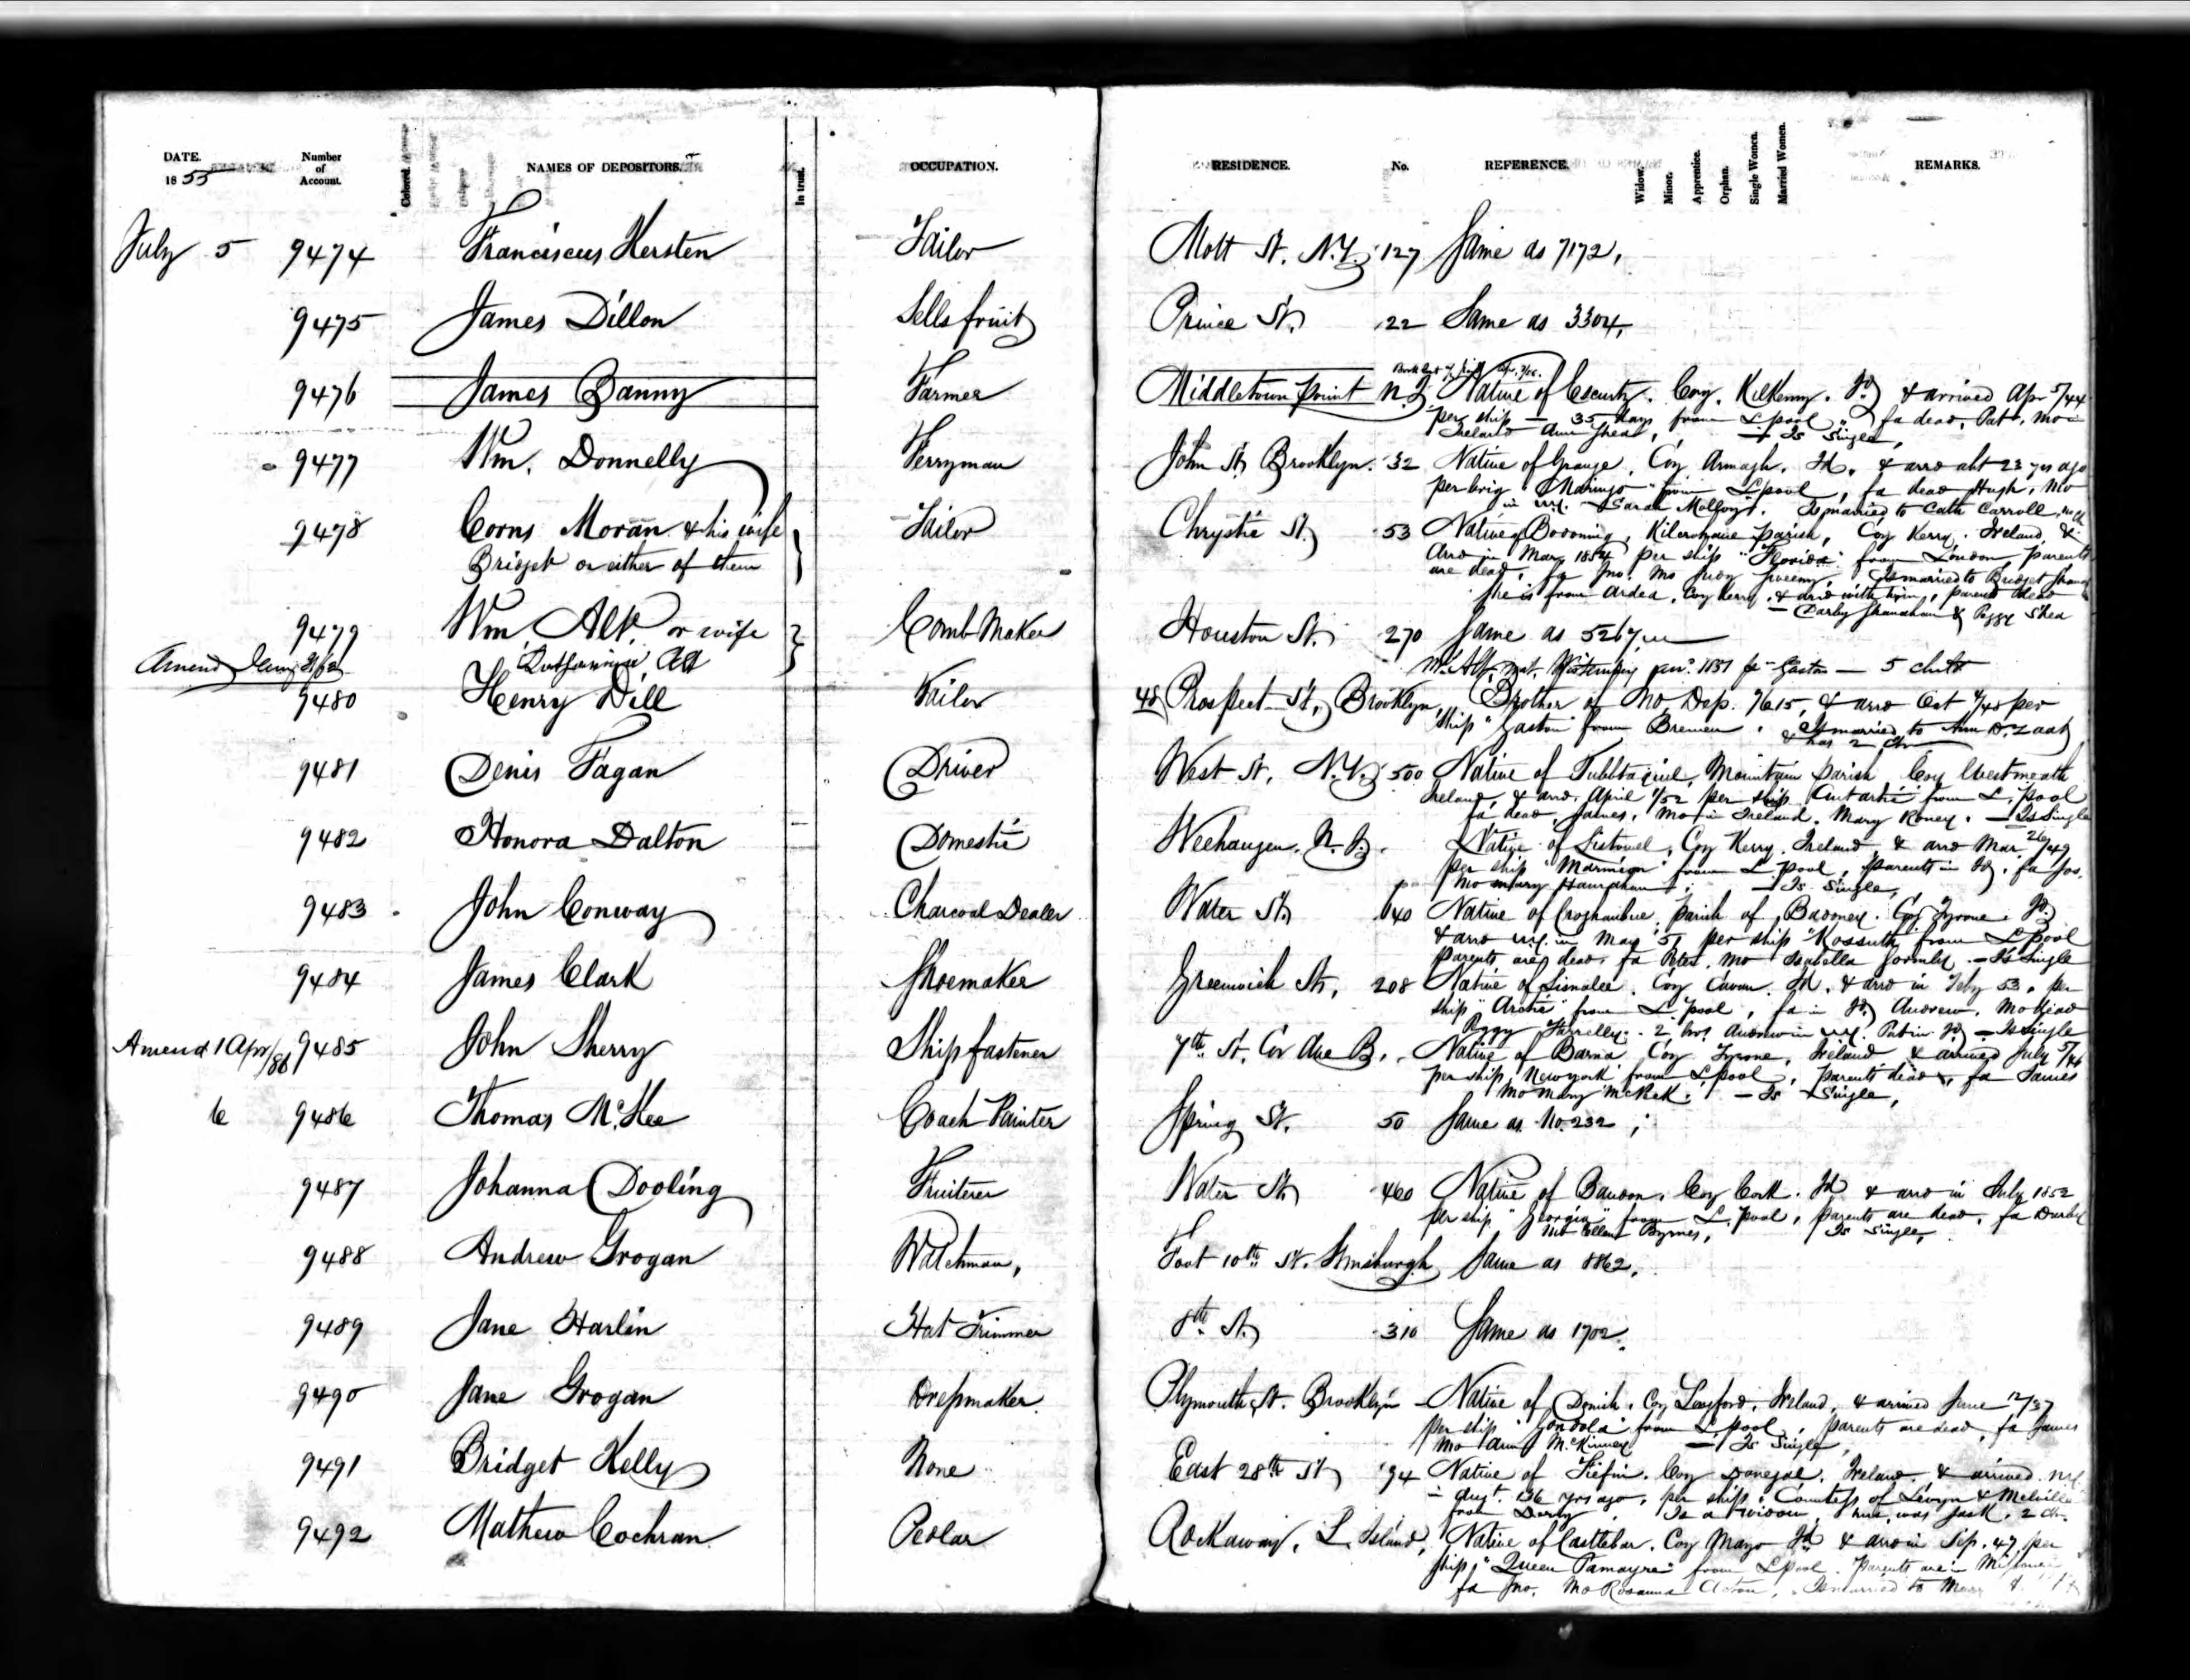 DATE. Number of Account. Colored. NAMES OF DEPOSITORS. In trust. OCCUPATION. RESIDENCE. No. REFERENCE. Widow. Minor. Apprentice. Orphan. Single Women. Married Women. REMARKS.
1855
July 5 9474 Franciscus Kersten Tailor Mott St. N.Y. 127 Same as 7172.
9475 James Dillon Sells fruit Prince St. 22 Same as 3304.
9476 James Danny Farmer Middletown Point N.J. Native of Coy. Kilkenny. Id. & arrived Apr 5/44
per ship — 35 days from L.pool, fa dead, Pat. mo in
Ireland Ann Shea, — Is Single,
9477 Wm. Donnelly Ferryman John St. Brooklyn. 32 Native of Grange, Coy Armagh. Id. & arrd abt 23 yrs ago
per brig from L.pool, fa dead Hugh, mo
in N.Y. Sarah Molloy. Is married to Cath Carroll,
9478 Corns Moran & his wife Tailor Chrystie St. 53 Native Parish, Coy Kerry. Ireland, &
Bridget or either of them arrd in Mar 1854 per ship "Florida" from London, parents
are dead, fa Jno. Mo Judy Is married to Bridget
She is from Ardea, Coy Kerry, & arrd with him, parents dead
— Darby Shanahan & Peggy Shea
9479 Wm Alt. or wife Comb Maker Houston St. 270 Same as 5267
Amend Alt 1851 5 child
9480 Henry Dill Tailor 48 Prospect St, Brooklyn, Brother of No. Dep. 7615, & arrd Oct 4/48 per
ship "Gaston" from Bremen. Is married to Ann
& has 2 ch
9481 Denis Fagan Driver West St. N.Y. 500 Native of Mountain Parish, Coy Westmeath
Ireland, & arrd. April 1/52 per ship from L.pool
fa dead, James, Mo in Ireland. Mary Roney. — Is Single
9482 Honora Dalton Domestic Weehaugen. N.J. Native of Listowel, Coy Kerry. Ireland, & arrd Mar 26/49
per ship "Marmion" from L.pool, parents in Id. fa Jos.
Mo Mary Hanrahan; — Is Single,
9483 John Conway Charcoal Dealer Water St. 640 Native of Parish of Badoney. Coy Tyrone. Id.
& arrd N.Y. in May 51 per ship "Kossuth" from L.pool
parents are dead. fa Peter, mo Isabella Gormley. — Is Single
9484 James Clark Shoemaker Greenwich St. 208 Native of Coy Cavan. Id. & arrd in Feby 53. per
ship "Arctic" from L.pool, fa in Id. Andrew. Mo dead
Peggy Farrelly. 2 bros Andrew in N.Y. Pat in Id. — Is Single
Amend 1 Apr/86 9485 John Sherry Ship fastener 7th St. Cor Ave B. Native of Barna Coy Tyrone, Ireland & arrived July 5/46
per ship New York from L.pool, parents dead, fa James
Mo Mary — Is Single,
6 9486 Thomas McKee Coach Painter Spring St. 50 Same as No. 232;
9487 Johanna Dooling Fruiterer Water St. 460 Native of Bandon. Coy Cork. Id. & arrd in July 1852
per ship "Georgia" from L.pool, parents are dead, fa Darby
Mo Ellen Byrnes, Is Single,
9488 Andrew Grogan Watchman, Foot 10th St. Wmsburgh Same as 8862.
9489 Jane Harlin Hat Trimmer 8th St. 310 Same as 1702.
9490 Jane Grogan Dressmaker. Plymouth St. Brooklyn Native of Coy Longford. Ireland, & arrived June 12/37
per ship "Gondola" from L.pool, parents are dead, fa James
Mo Ann McKinney — Is Single,
9491 Bridget Kelly None East 28th St. 94 Native of Coy Donegal. Ireland. & arrived N.Y.
in Augt. yrs ago, per ship Countess of & Melville
from Derry. Is a widow, hus. was 2 ch.
9492 Mathew Cochran Pedlar Rockaway, L. Island, Native of Castlebar. Coy Mayo Id. & arrd in Sep. 47 per
ship "Queen from L.pool. Parents are in
fa Jno. Mo Rosanna Is married to